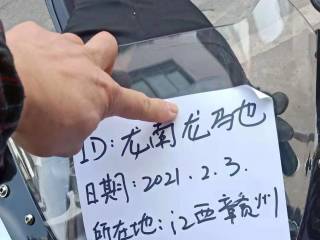 ID：龙南龙马也
日期：2021.2.3.
所在地：江西赣州